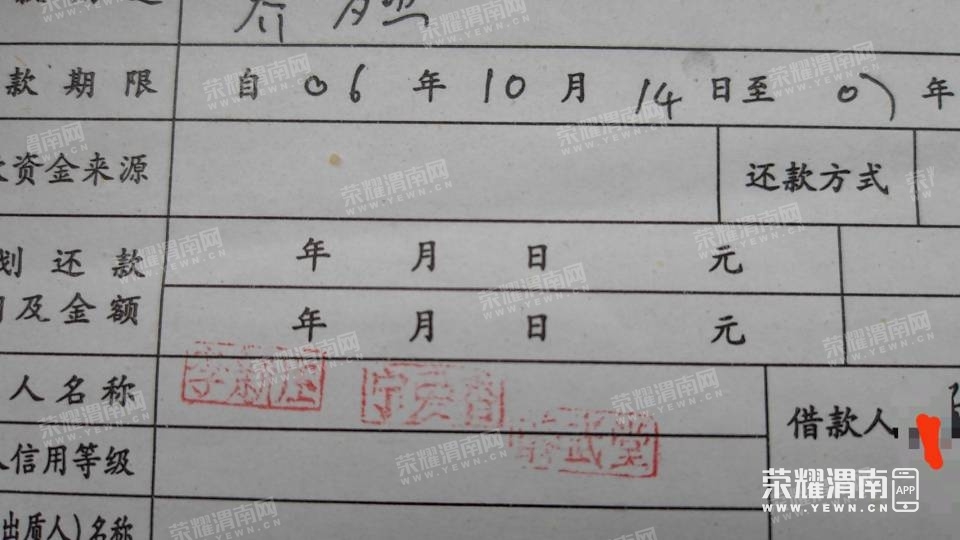 款期限 自 06 年 10 月 14 日至 07 年
资金来源 还款方式
划还款 年 月 日 元
及金额 年 月 日 元
人名称 借款人
人信用等级
出质人)名称
荣耀渭南网 APP
WWW.YEWN.CN